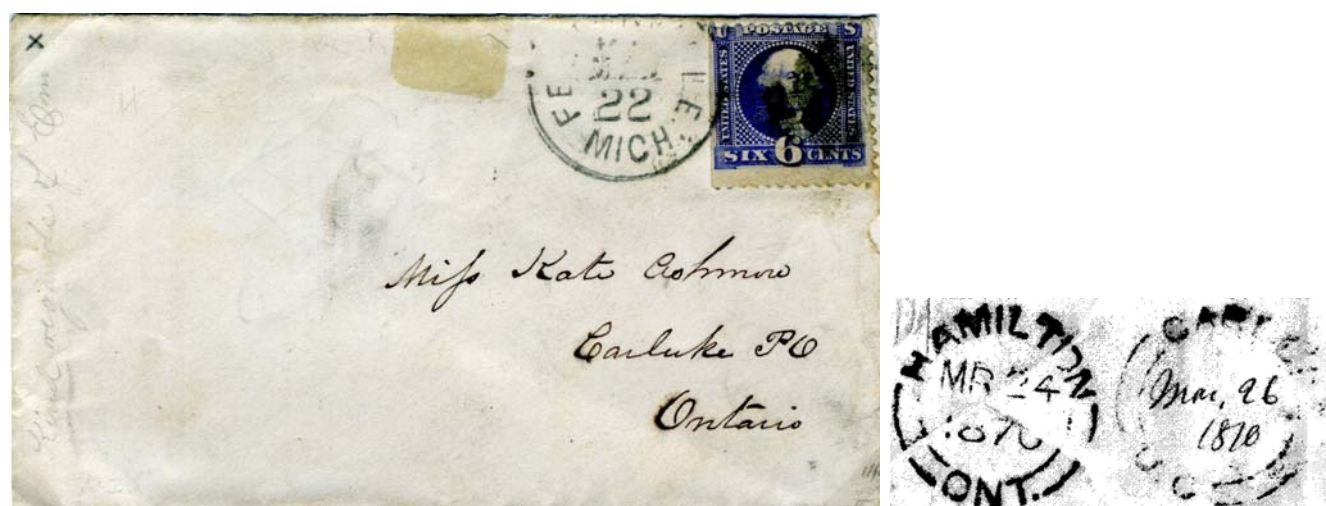 x
22
MICH.
U POSTAGE S
UNITED STATES
UNITED STATES
SIX 6 CENTS
Miss Kate Ashmore
Carluke PO
Ontario
HAMILTON
MR 24
1870
ONT.
Mar. 26
1870